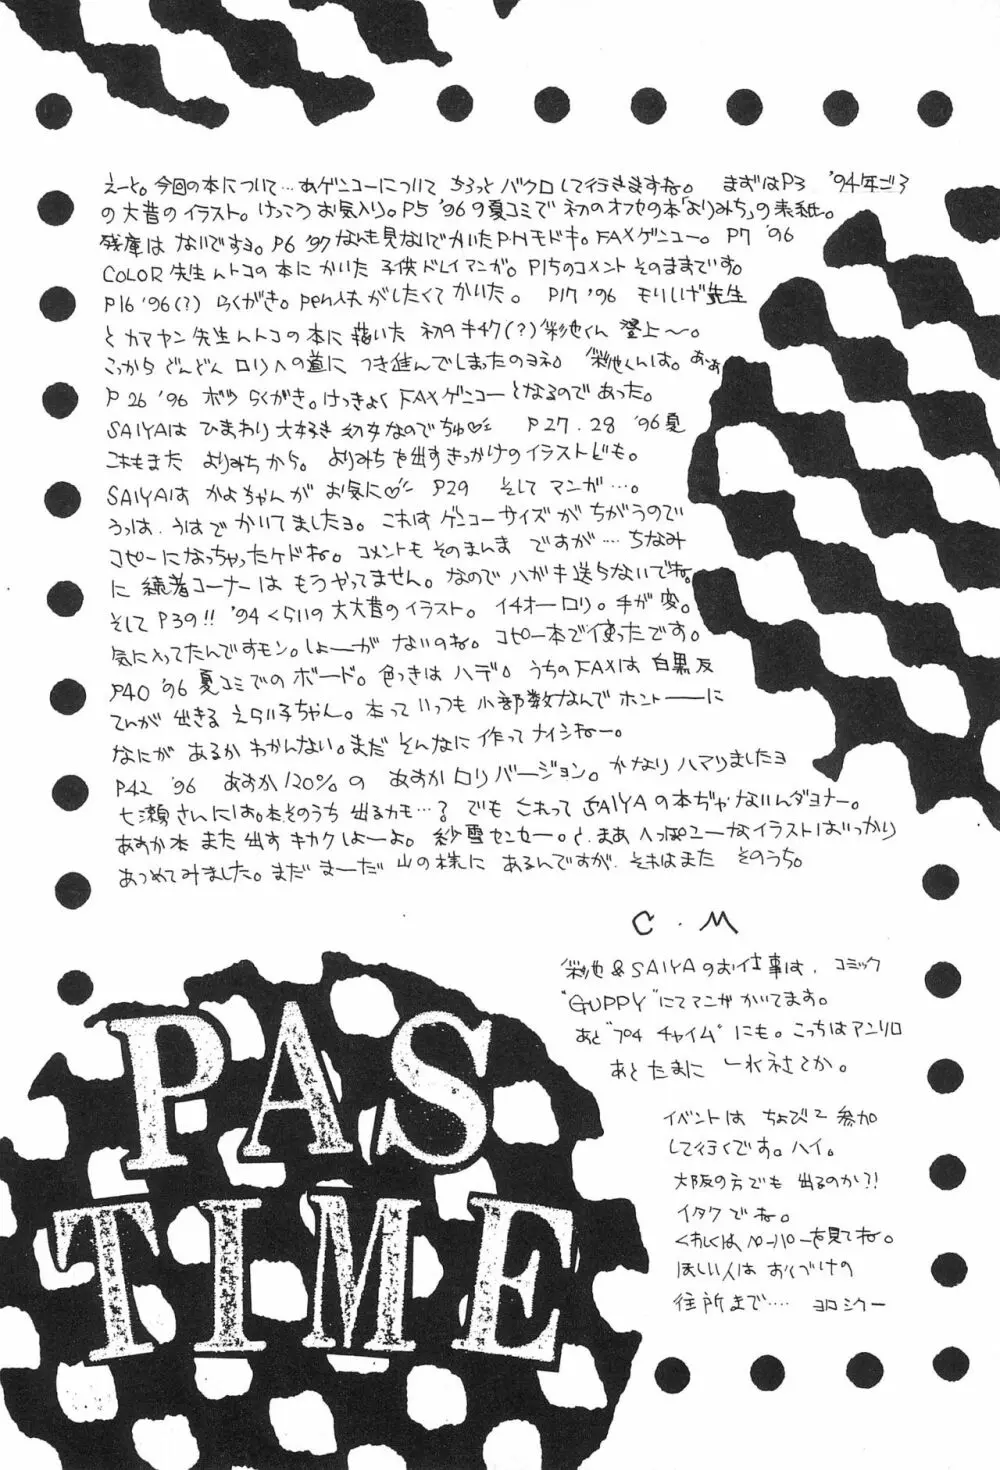 えーと。今回の本について…あゲンコーについて ちろっと バクロして行きますね。 まずはP3 '94年ごろ
の大昔のイラスト。けっこうお気入り。P5 '96の夏コミで 初のオフセの本「よりみち」の表紙。
残庫は ないですヨ。P6 '97なんも見ないでかいたPHモドキ。FAXゲンコー。P7 '96
COLOR先生んトコの本に かいた 子供ドレイマンガ。P15のコメント そのままです。
P16 '96(?) らくがき。pen入れがしたくて かいた。 P17 '96 もりしげ先生
と カマヤン先生んトコの本に描いた 初のキチク(?)彩池くん 登上〜。
こっから どんどん ロリへの道に つき進んでしまったのヨネ。 彩池くんは。あぁ
P26 '96 ボツ らくがき。けっきょく FAXゲンコーとなるのであった。
SAIYAは ひまわり大好き 幼女なのでちゅ♡ P27.28 '96夏
これもまた よりみちから。よりみちを出すきっかけのイラストども。
SAIYAは かよちゃんが お気に♡ P29 そして マンガ…。
うっは、うはで かいてましたヨ。これは ゲンコーサイズが ちがうので
コピーになっちゃったケドね。コメントも そのまんま ですが… ちなみ
に 続着コーナーは もうやってません。なので ハガキ送らないでね。
そして P39!! '94くらいの大大昔のイラスト。イチオーロリ。手が変。
気に入ってたんですモン。しょーが ないのね。 コピー本で使ったです。
P40 '96 夏コミでの ボード。色つきは ハデ。うちのFAXは 白黒反
てんが 出きる えらい子ちゃん。本って いっつも 小部数なんで ホントーーに
なにが あるか わかんない。まだ そんなに 作って ナイシねー。
P42 '96 あすか120%の あすかロリバージョン。かなり ハマりましたヨ
七瀬さんには。本そのうち 出るカモ…? でも これって SAIYAの本ぢゃないんダヨナー。
あすか本 また 出す キカクしよーよ。 紗雪センセー。と、まあ へっぽコーなイラストばっかり
あつめてみました。まだ まーだ 山の様に あるんですが、それはまた そのうち。
C.M
彩池&SAIYAのお仕事は、コミック
"GUPPY"にてマンガ かいてます。
あと"プチ チャイム"にも。こっちはアンソロ
あと たまに 一水社さとか。
イベントは ちょびっと 参加
して行くです。ハイ。
大阪の方でも 出るのか?!
イタクでね。
くわしくは ペーパーを見てね。
ほしい人は おくづけの
住所まで…. ヨロシクー
PAS
TIME